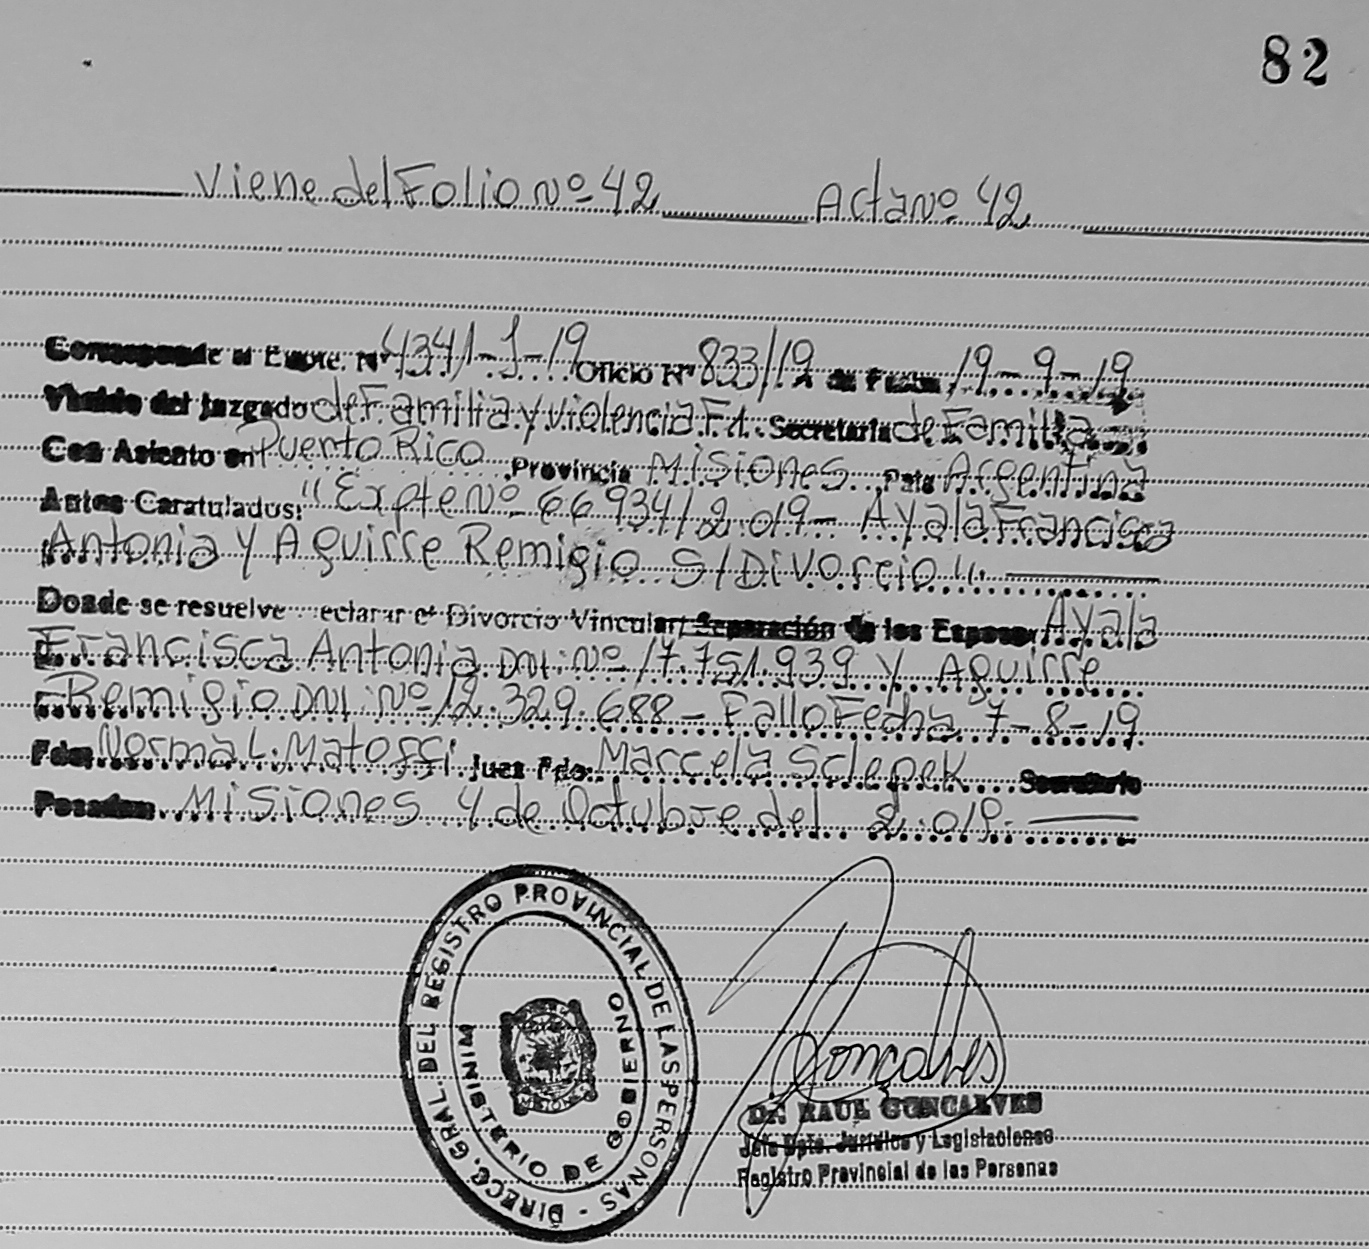 82
Viene del Folio Nº 42 Acta Nº 42
Corresponde al Expte. Nº 4341-J-19 Oficio Nº 833/19 de Fecha 19-9-19
del Juzgado de Familia y Violencia F1. Secretaria de Familia
Con Asiento en Puerto Rico Provincia Misiones Pais Argentina
Autos Caratulados: "Expte Nº 66934/2.019 - Ayala Francisca
Antonia Y Aguirre Remigio S/Divorcio".
Donde se resuelve eclarar el Divorcio Vincular, Separación de los Esposos Ayala
Francisca Antonia DNI: Nº 17.751.939 y Aguirre
Remigio DNI: Nº 12.329.688 - Fallo Fecha 7-8-19
Fdo: Norma L. Matoffi Juez Fdo: Marcela Sclepek Secretario
Posadas Misiones 4 de Octubre del 2.019.
DIRECC. GRAL. DEL REGISTRO PROVINCIAL DE LAS PERSONAS -
MINISTERIO DE GOBIERNO
MISIONES
Goncalves
Dr. RAUL GONCALVES
Jefe Dpto. Jurídico y Legislaciones
Registro Provincial de las Personas